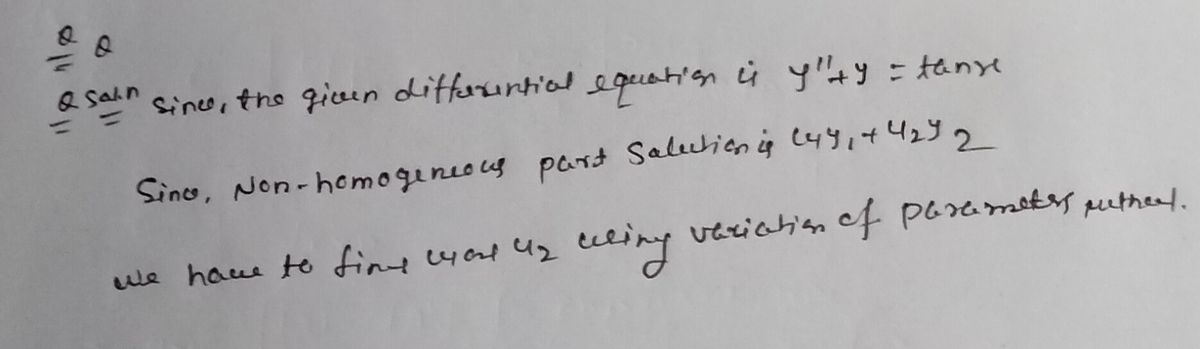 Q Q
Q Sol.n Since, the given differential equation is y''+y = tanx
Since, Non-homogeneous part Solution is u1y1+u2y2
we have to find u1 and u2 using variation of parameters method.